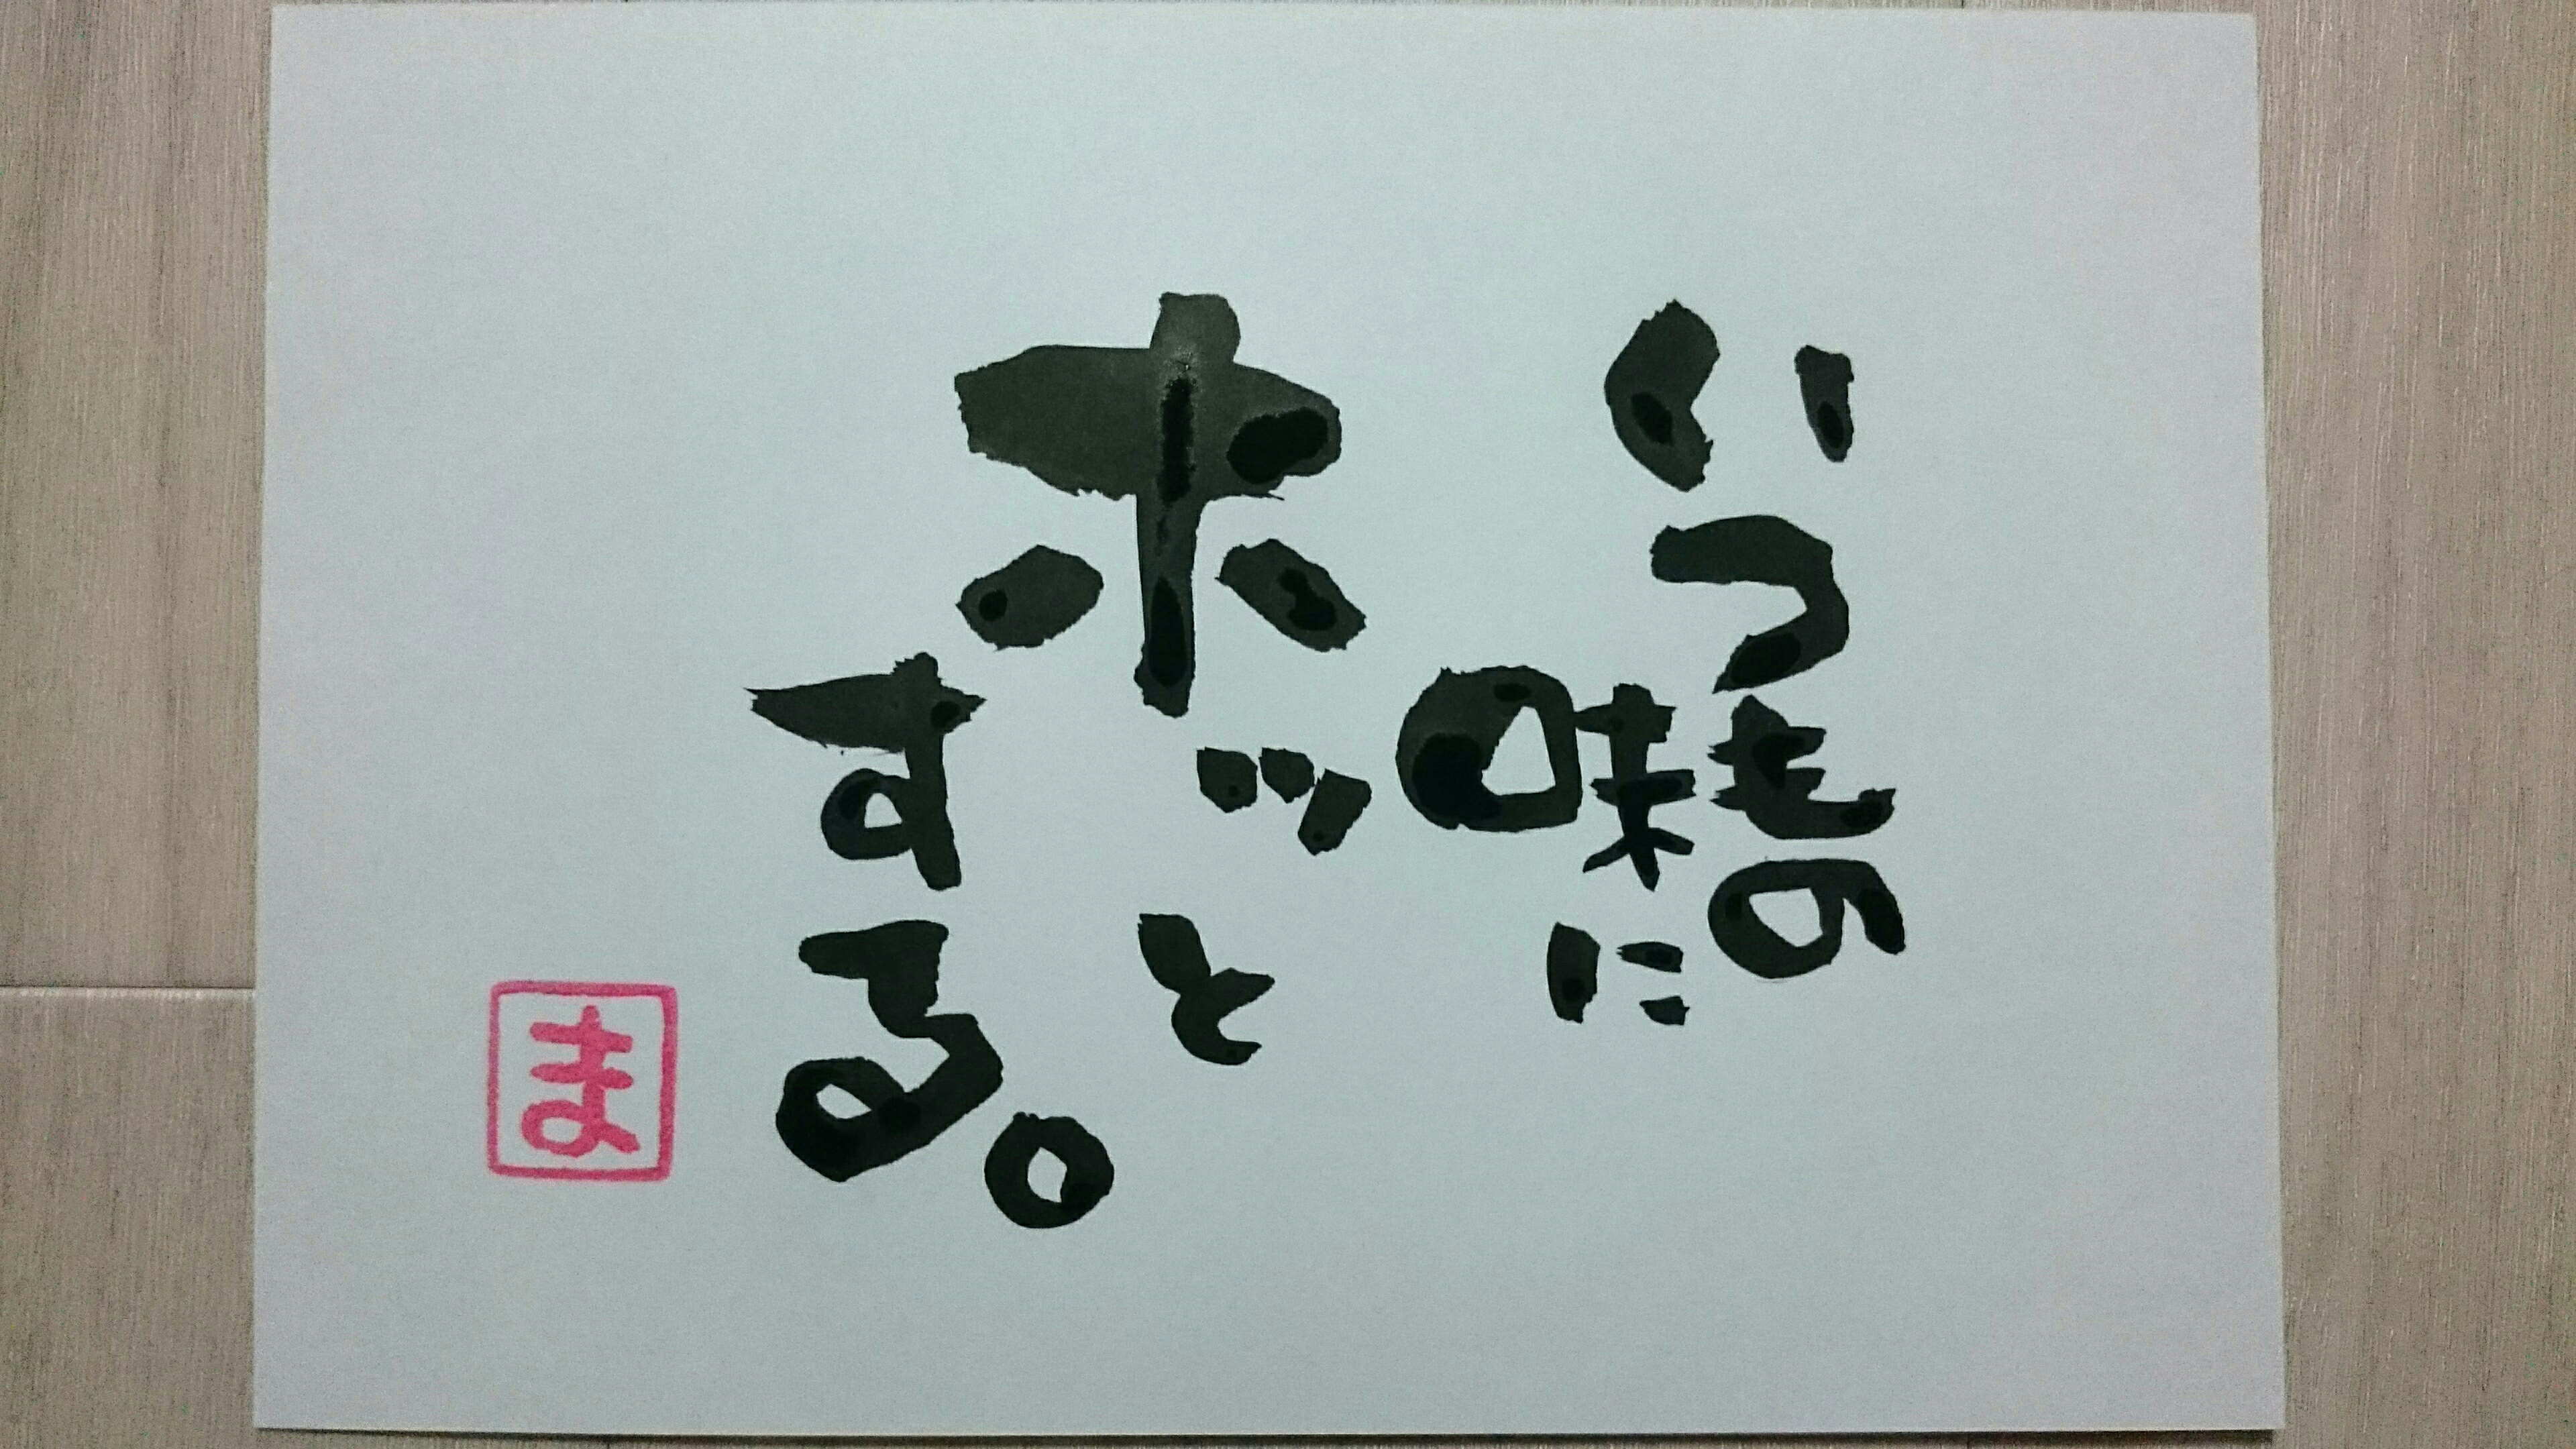 いつもの
味に
ホッと
する。
ま